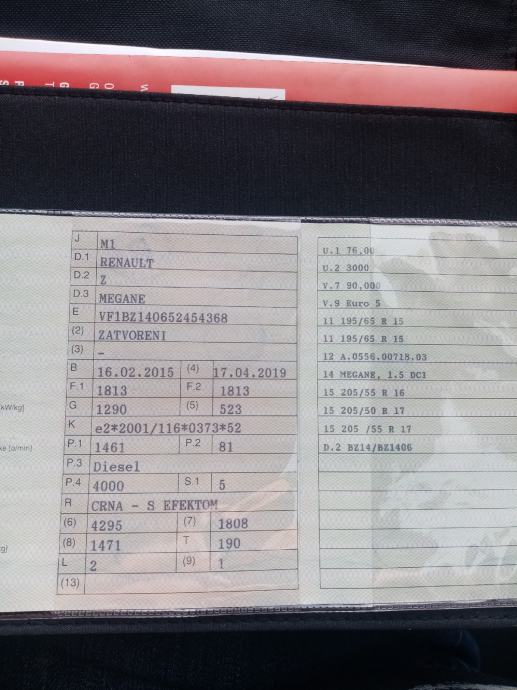 J M1
D.1 RENAULT
D.2 Z
D.3 MEGANE
E VF1BZ140652454368
(2) ZATVORENI
(3) -
B 16.02.2015 (4) 17.04.2019
F.1 1813 F.2 1813
kW/kg] G 1290 (5) 523
K e2*2001/116*0373*52
ke [o/min) P.1 1461 P.2 81
P.3 Diesel
P.4 4000 S.1 5
R CRNA - S EFEKTOM
(6) 4295 (7) 1808
(8) 1471 T 190
L 2 (9) 1
(13)
U.1 76,00
U.2 3000
V.7 90,000
V.9 Euro 5
11 195/65 R 15
11 195/65 R 15
12 A.0556.00718.03
14 MEGANE, 1.5 DCI
15 205/55 R 16
15 205/50 R 17
15 205 /55 R 17
D.2 BZ14/BZ1406